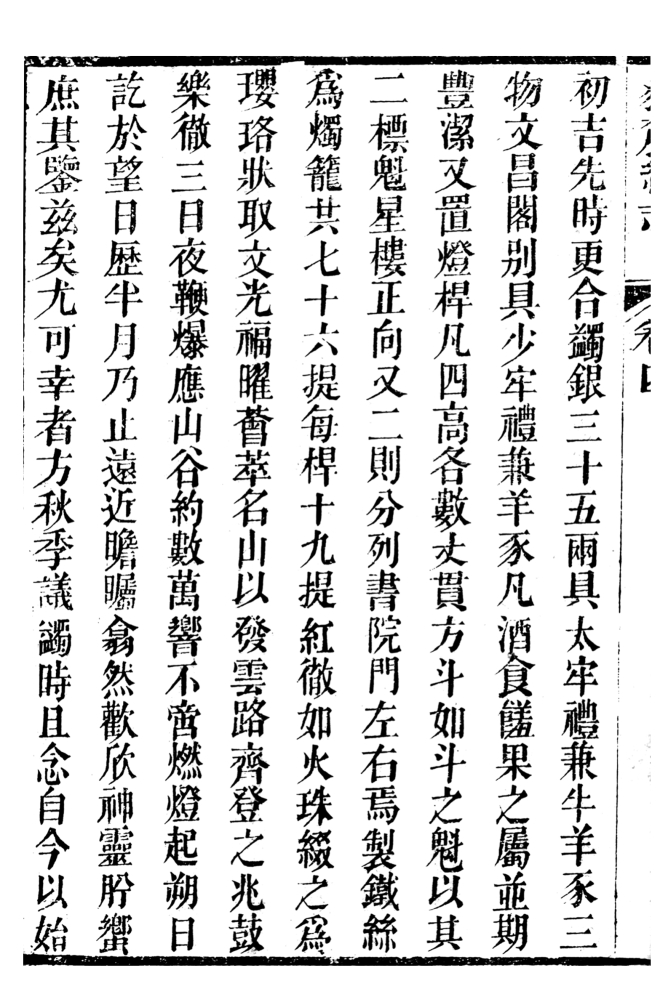 卷四
初吉先時更合蠲銀三十五兩具太牢禮兼牛羊豕三
物文昌閣别具少牢禮兼羊豕凡酒食饈果之屬並期
豐潔又置燈桿凡四高各數丈貫方斗如斗之魁以其
二標魁星樓正向又二則分列書院門左右焉製鐵絲
為燭籠共七十六提每桿十九提紅徹如火珠綴之為
瓔珞狀取文光福曜薈萃名山以發雲路齊登之兆鼓
樂徹三日夜鞭爆應山谷約數萬響不啻燃燈起朔日
訖於望日歷半月乃止遠近瞻矚翕然歡欣神靈肹蠁
庶其鑒兹矣尤可幸者方秋季議蠲時且念自今以始